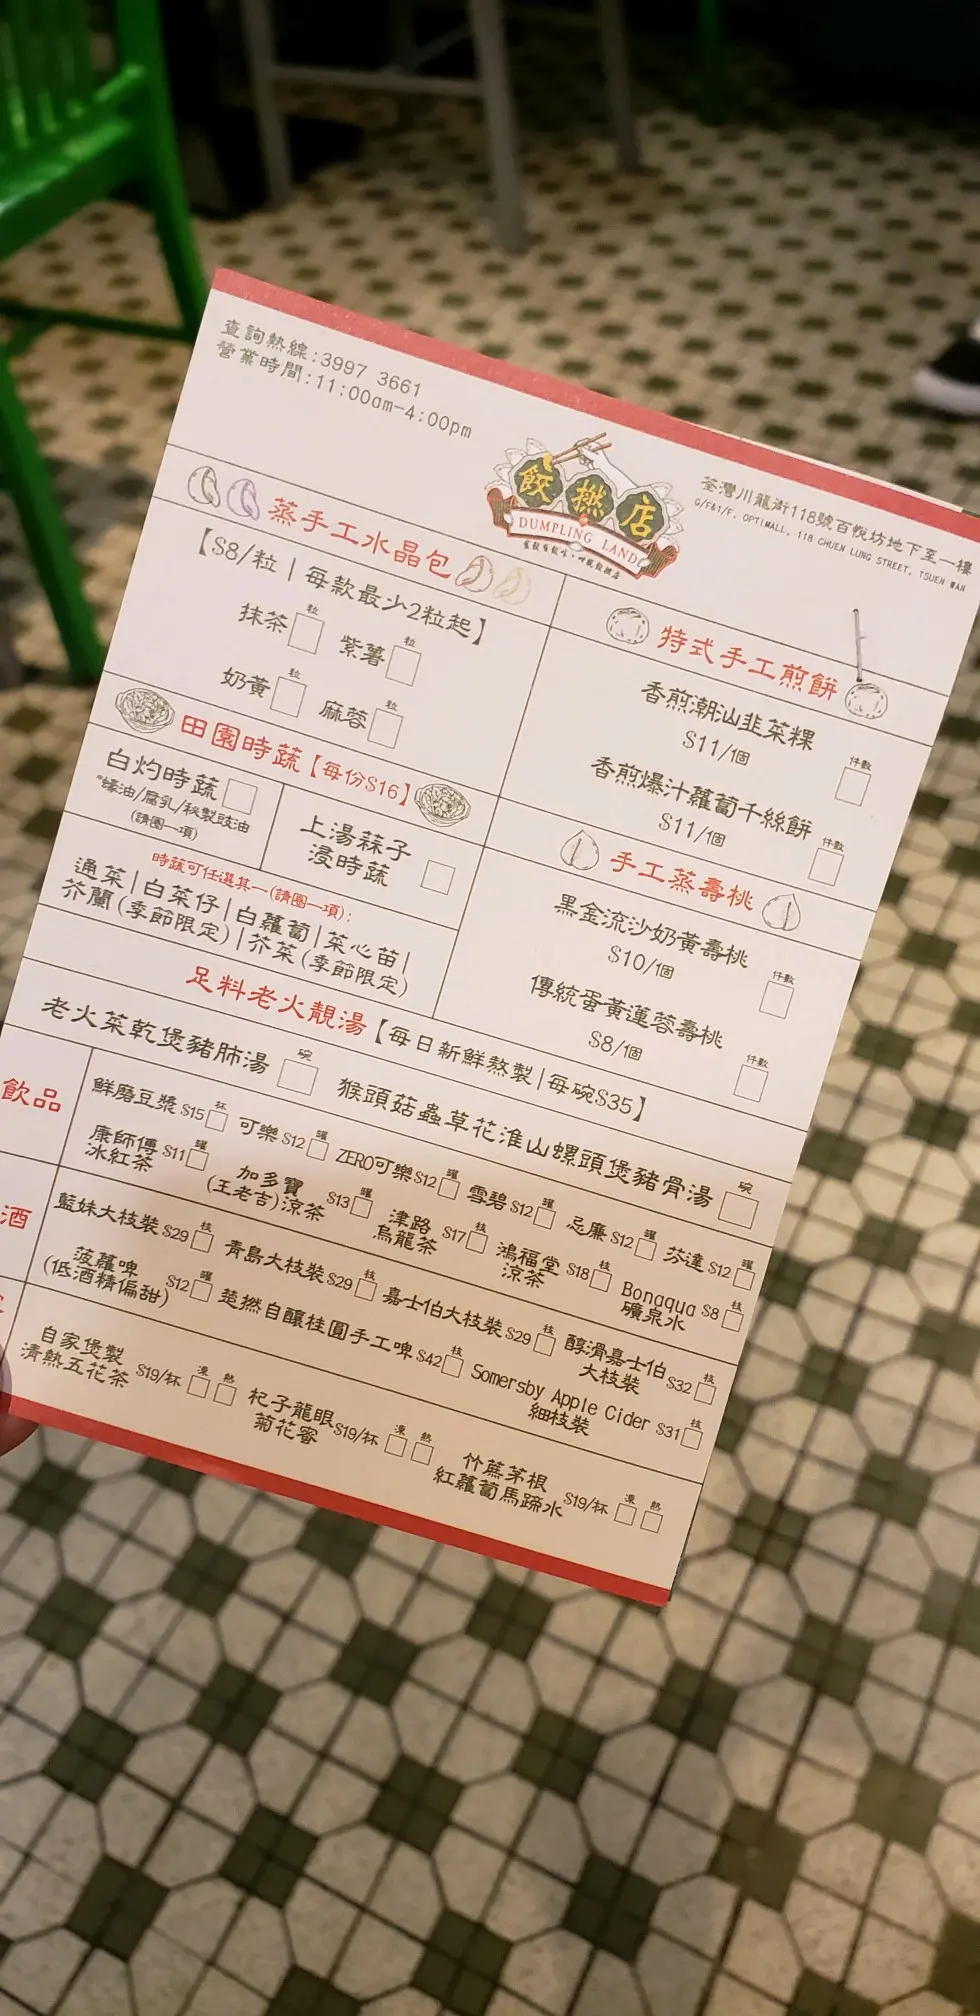 查詢熱線:3997 3661
營業時間:11:00am-4:00pm
餃撚店
DUMPLING LAND
荃灣川龍街118號百悅坊地下至一樓
G/F&1/F, OPTIMALL, 118 CHUEN LUNG STREET, TSUEN WAN
蒸手工水晶包
【$8/粒 | 每款最少2粒起】
抹茶 粒
紫薯 粒
奶黃 粒
麻蓉 粒
田園時蔬【每份$16】
白灼時蔬
*蠔油/腐乳/秘製豉油
(請圈一項)
上湯蒜子
浸時蔬
時蔬可任選其一(請圈一項):
通菜|白菜仔|白蘿蔔|菜心苗|
芥蘭(季節限定)|芥菜(季節限定)
特式手工煎餅
香煎潮汕韭菜粿
$11/個
件數
香煎爆汁蘿蔔千絲餅
$11/個
件數
手工蒸壽桃
黑金流沙奶黃壽桃
$10/個
件數
傳統蛋黃蓮蓉壽桃
$8/個
件數
足料老火靚湯【每日新鮮熬製|每碗$35】
老火菜乾煲豬肺湯 碗
猴頭菇蟲草花淮山螺頭煲豬骨湯 碗
飲品
鮮磨豆漿 $15 杯
可樂 $12 罐
ZERO可樂 $12 罐
雪碧 $12 罐
忌廉 $12 罐
芬達 $12 罐
康師傅
冰紅茶 $11 罐
加多寶
(王老吉)涼茶 $13 罐
津路
烏龍茶 $17 枝
鴻福堂
涼茶 $18 枝
Bonaqua
礦泉水 $8 枝
酒
藍妹大枝裝 $29 枝
青島大枝裝 $29 枝
嘉士伯大枝裝 $29 枝
醇滑嘉士伯
大枝裝 $32 枝
菠蘿啤
(低酒精偏甜) $12 罐
楚撚自釀桂圓手工啤 $42 枝
Somersby Apple Cider
細枝裝 $31 枝
自家煲製
清熱五花茶 $19/杯 凍 熱
杞子龍眼
菊花蜜 $19/杯 凍 熱
竹蔗茅根
紅蘿蔔馬蹄水 $19/杯 凍 熱